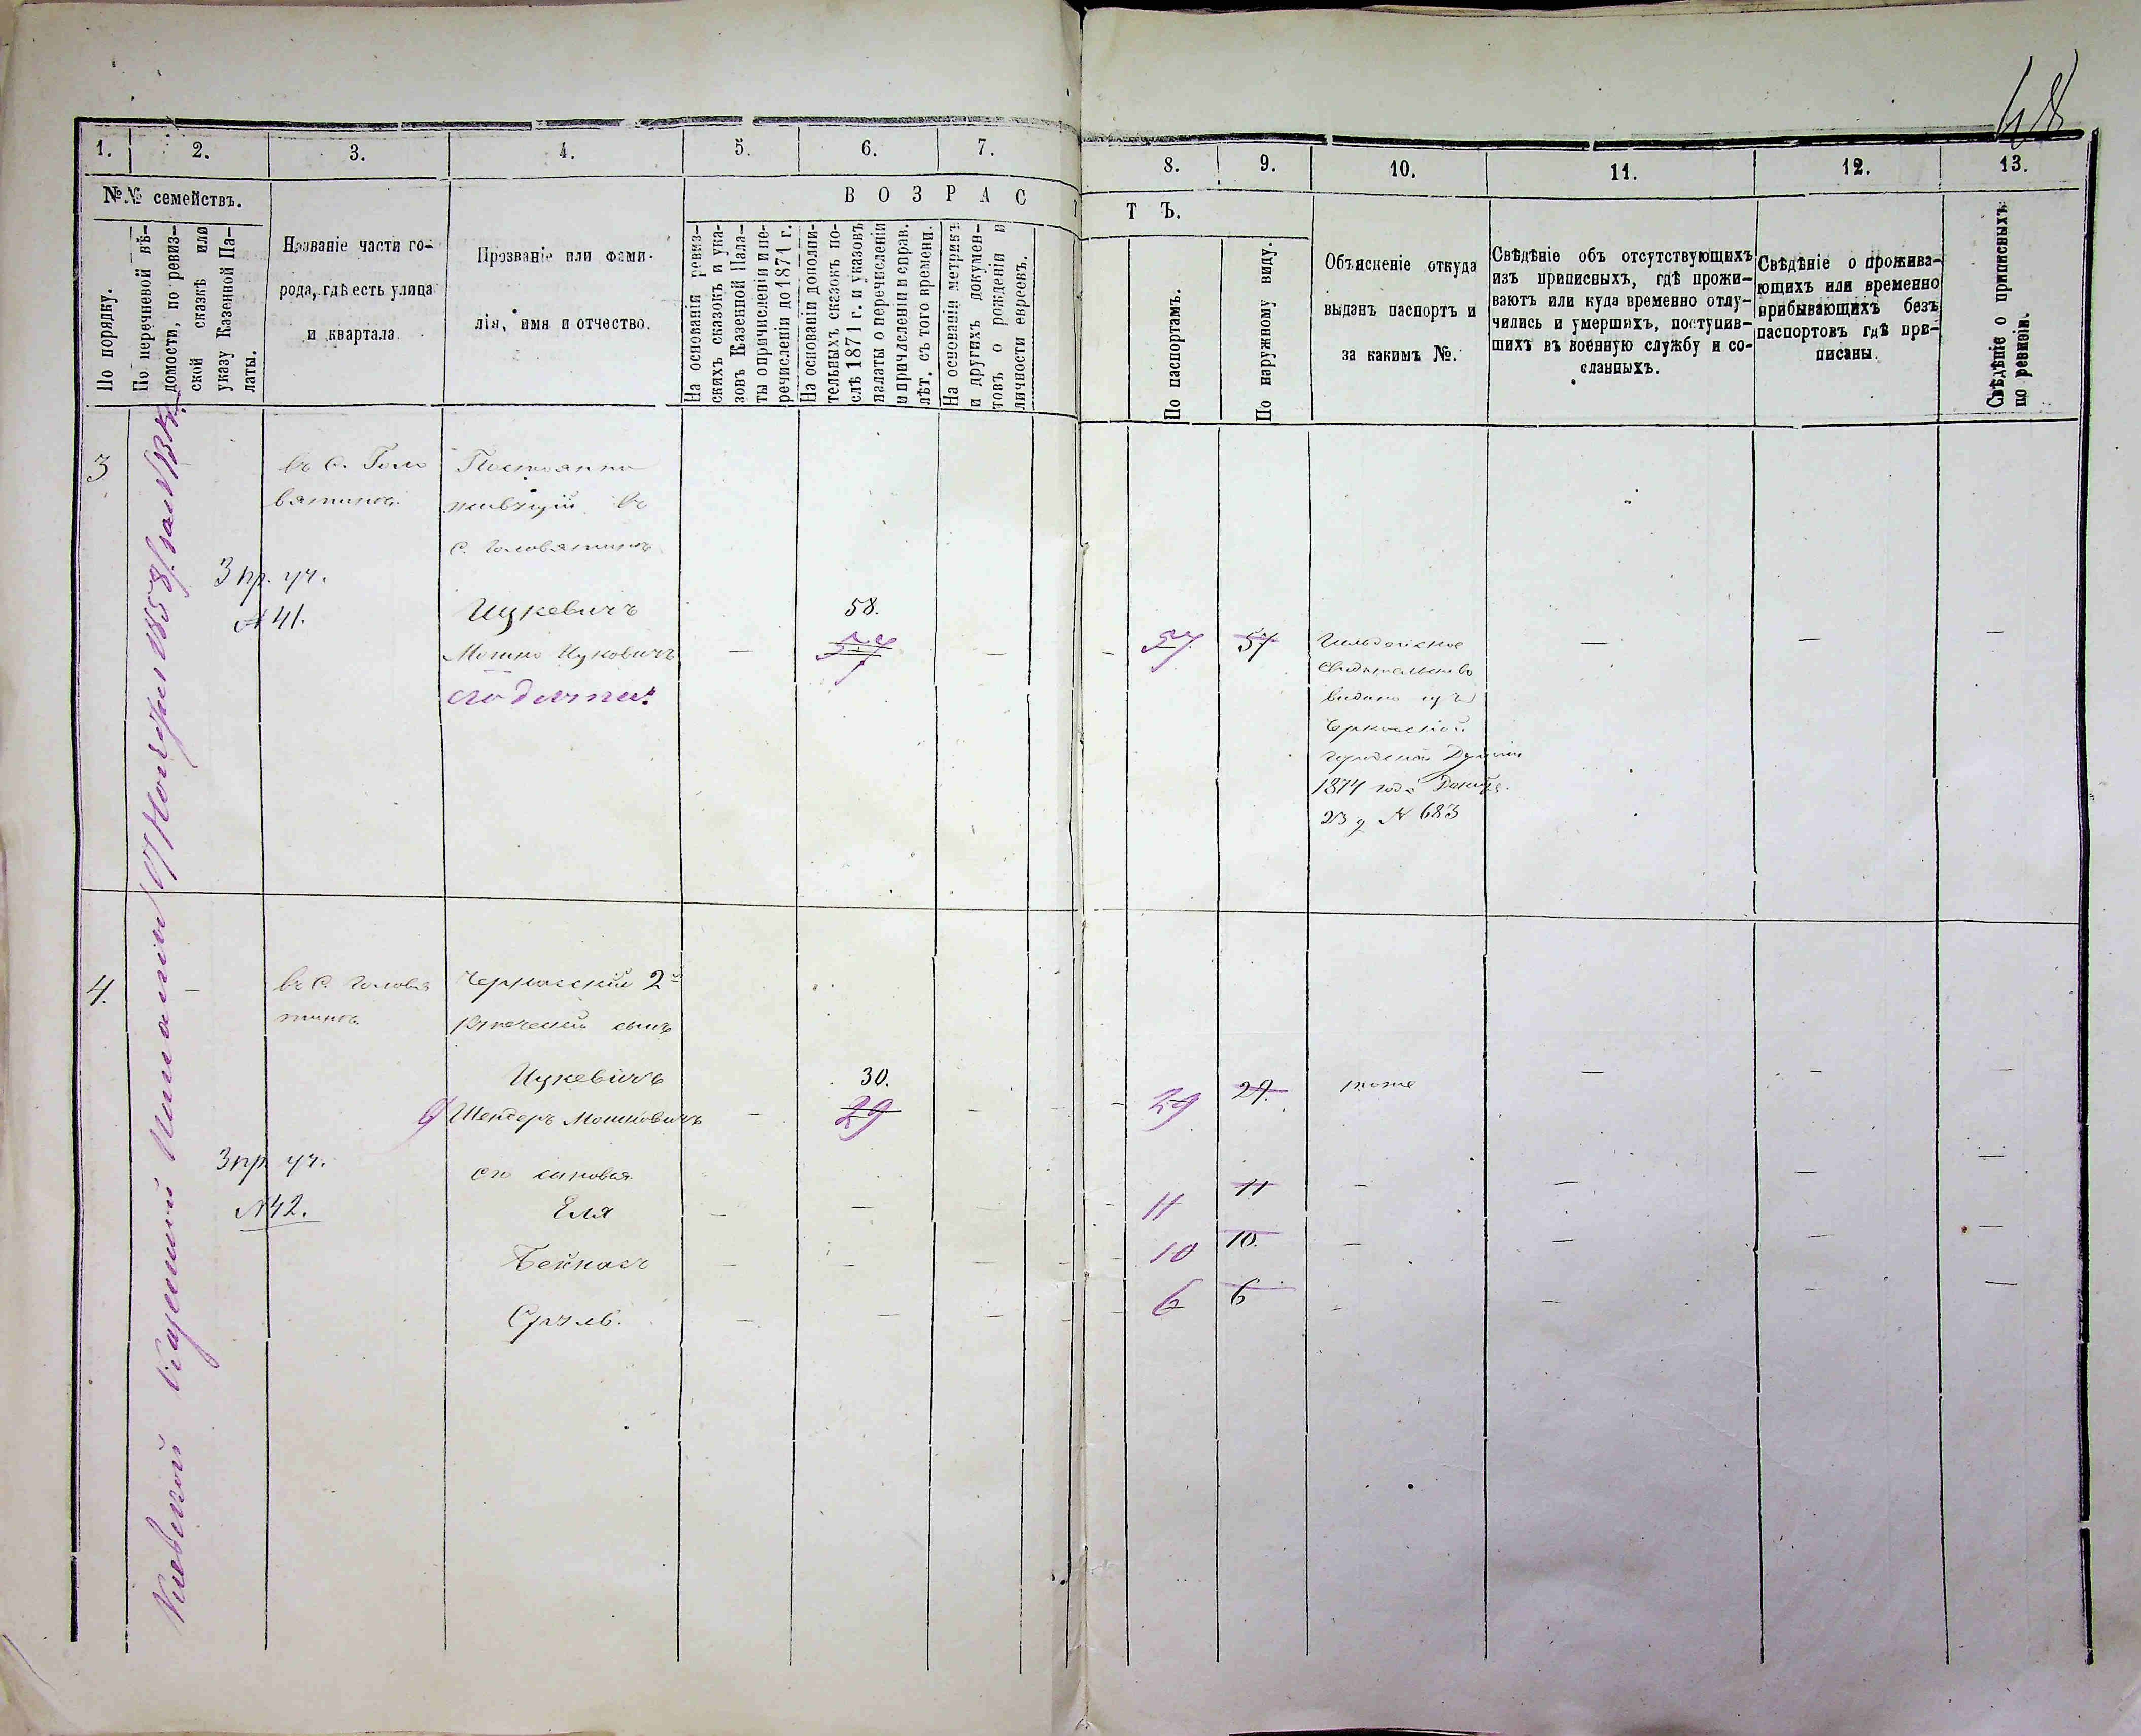 48
1. 2. 3. 4. 5. 6. 7. 8. 9. 10. 11. 12. 13.
№№ семействъ.
По порядку.
По перечневой вѣ-
домости, по ревиз-
ской сказкѣ или
указу Казенной Па-
латы.
Названіе части го-
рода, гдѣ есть улица
и квартала.
Прозваніе или фами-
лія, имя и отчество.
ВОЗРАСТЪ.
На основаніи ревиз-
скихъ сказокъ и ука-
зовъ Казенной Пала-
ты о причисленіи и пе-
речисленіи до 1871 г.
На основаніи дополни-
тельныхъ сказокъ по-
слѣ 1871 г. и указовъ
палаты о перечисленіи
и причисленіи и справ.
лѣт. съ того времени.
На основаніи метрикъ
и другихъ докумен-
товъ о рожденіи и
личности евреевъ.
По паспортамъ.
По наружному виду.
Объясненіе откуда
выданъ паспортъ и
за какимъ №.
Свѣдѣніе объ отсутствующихъ
изъ приписныхъ, гдѣ прожи-
ваютъ или куда временно отлу-
чились и умершихъ, поступив-
шихъ въ военную службу и со-
сланныхъ.
Свѣдѣніе о прожива-
ющихъ или временно
прибывающихъ безъ
паспортовъ гдѣ при-
писаны.
Свѣдѣніе о приписныхъ
по ревизіи.
3
въ С. Голо
вятинѣ
Постоянно
живущій въ
С. Головятинѣ
3 пр. уч.
№ 41.
Ицкевичъ
58.
Мошко Ицковичъ — 57 — — 57 57 — — —
Гильдейское
свидетельство
видано изъ
Черкасской
городской Думы
1874 года Декаб.
23 д № 683
4. —
въ С. Головя
тинѣ
Черкасскій 2й
купеческій сынъ
Ицкевичъ
30.
Шендеръ Мошковичъ — 29 — — — 29 29. тоже — — —
3 пр. уч.
№ 42.
его сыновья
Еля — — — 11 11 — — — —
Бейнасъ — — — — — 10 10. — — — —
Сруль. — — — — — 6 6 — — — —
Киевской Казенной Палаты